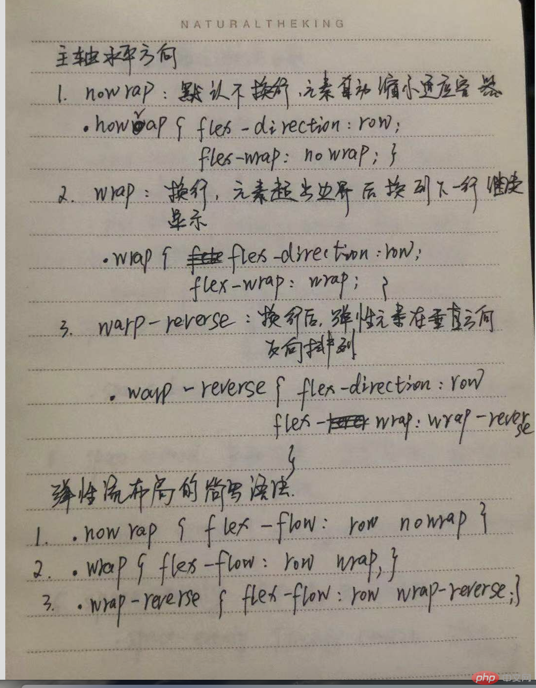 NATURALTHEKING
主轴水平方向
1. nowrap：默认不换行，元素自动缩小适应容器
.nowrap { flex-direction: row;
flex-wrap: nowrap; }
2. wrap：换行，元素超出边界后换到下一行继续
显示
.wrap { flex-direction: row;
flex-wrap: wrap; }
3. warp-reverse：换行后，弹性元素在垂直方向
反向排列
.warp-reverse { flex-direction: row
flex-wrap: wrap-reverse
}
弹性流布局的简写语法
1. .nowrap { flex-flow: row nowrap }
2. .wrap { flex-flow: row wrap; }
3. .wrap-reverse { flex-flow: row wrap-reverse; }
php 中文网